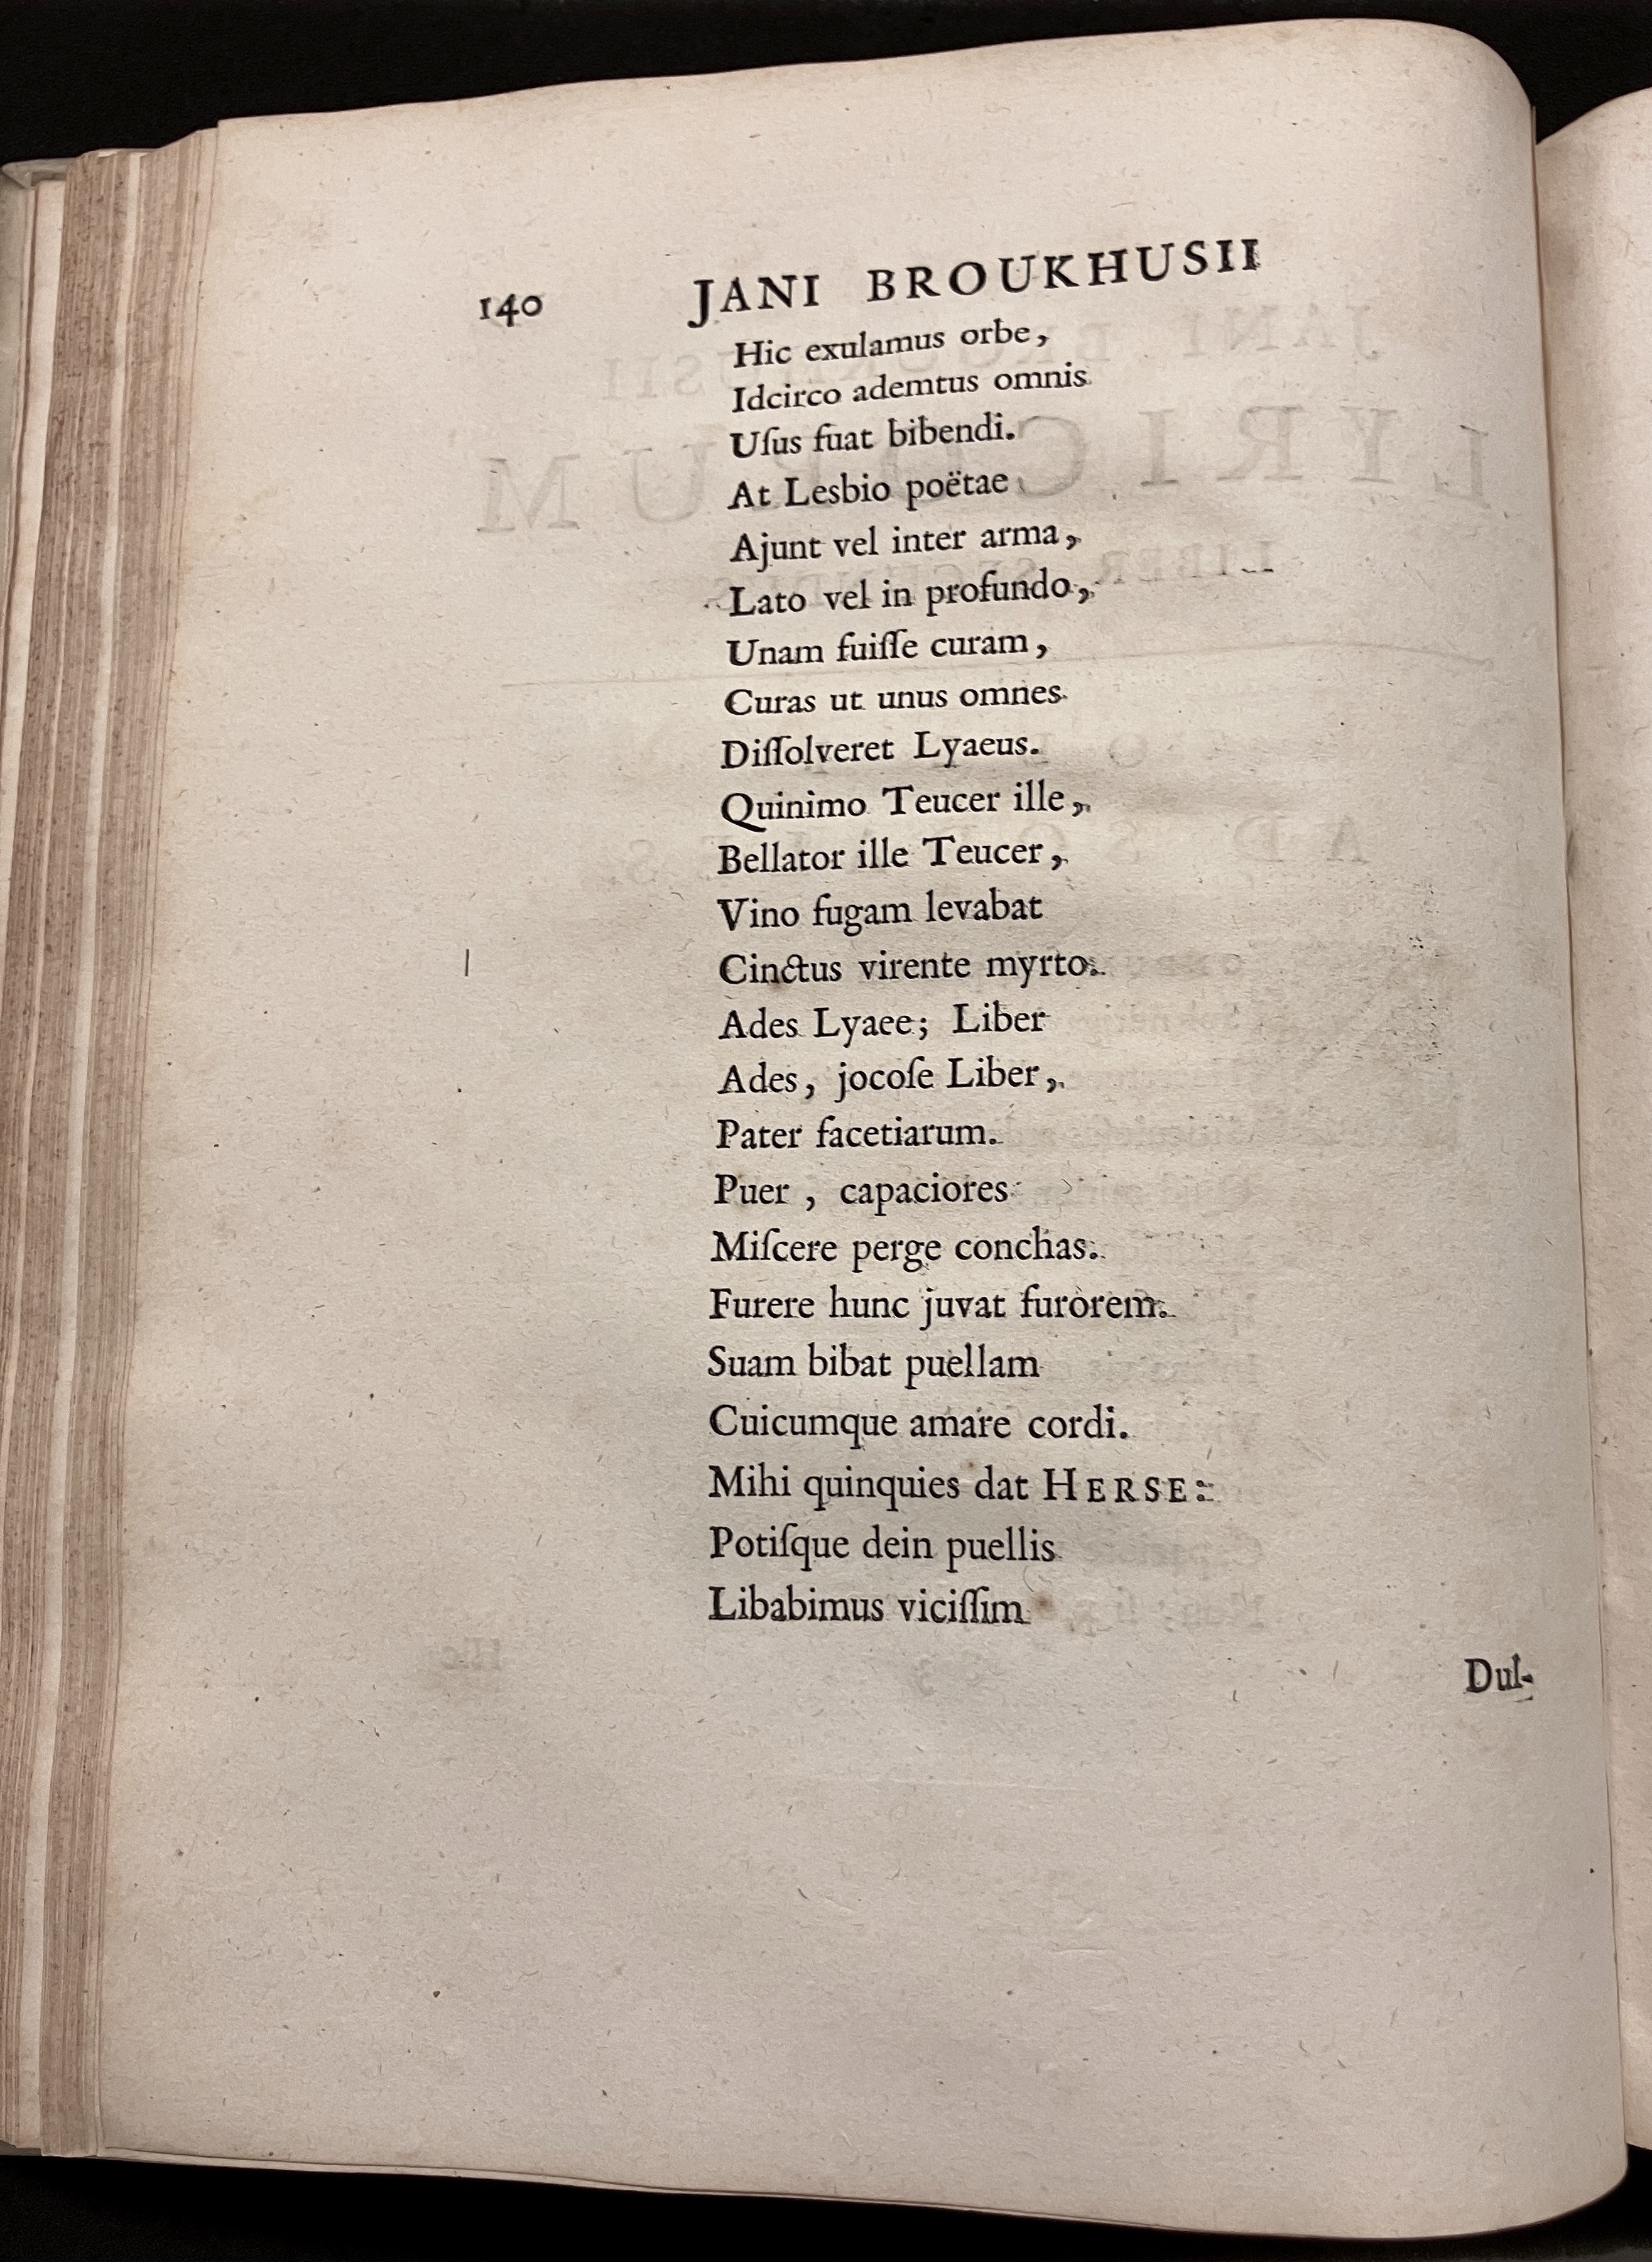 140 JANI BROUKHUSII
Hic exulamus orbe,
Idcirco ademtus omnis
Uſus fuat bibendi.
At Lesbio poëtae
Ajunt vel inter arma,
Lato vel in profundo,
Unam fuiſſe curam,
Curas ut unus omnes
Diſſolveret Lyaeus.
Quinimo Teucer ille,
Bellator ille Teucer,
Vino fugam levabat
Cinctus virente myrto.
Ades Lyaee; Liber
Ades, jocoſe Liber,
Pater facetiarum.
Puer, capaciores
Miſcere perge conchas.
Furere hunc juvat furorem.
Suam bibat puellam
Cuicumque amare cordi.
Mihi quinquies dat HERSE:
Potiſque dein puellis
Libabimus viciſſim
Dul-